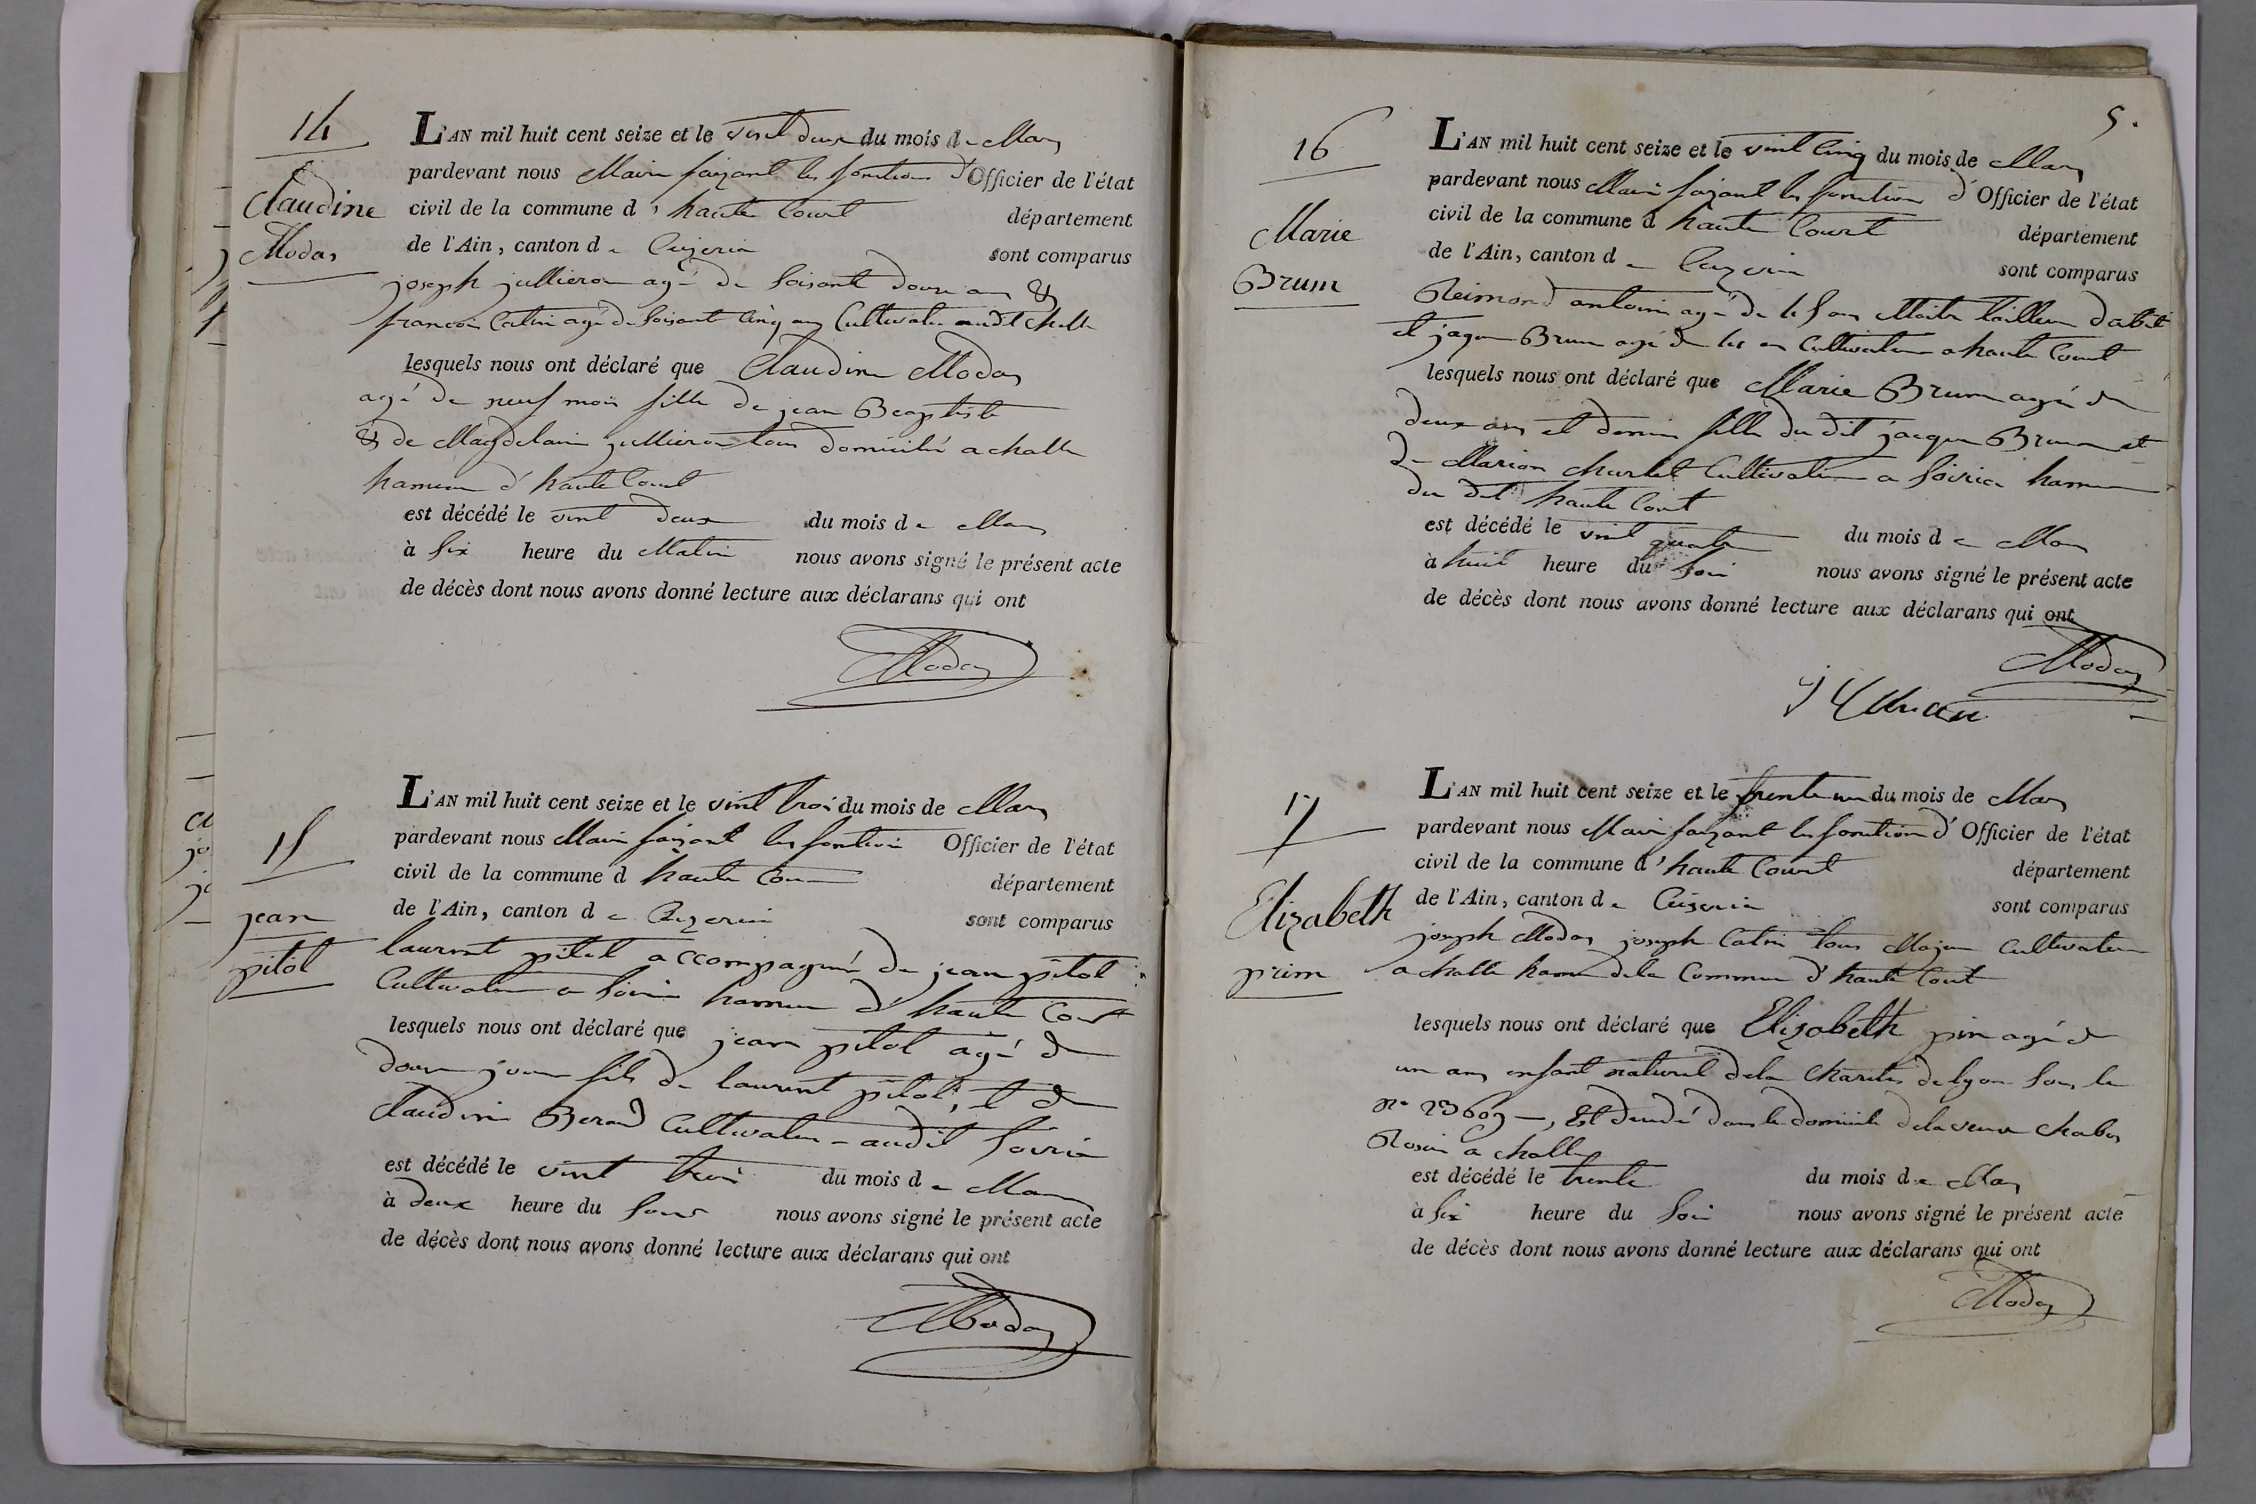 14
Claudine
Modas
L'AN mil huit cent seize et le vint deux du mois de Mars
pardevant nous Maire faizant les fonctions d'Officier de l'état
civil de la commune d'haute Court département
de l'Ain, canton de Ceizeria sont comparus
joseph jullieron agé de soisant douze ans &
francois Catin agé de soisant cinq ans Cultivateur audt challe
lesquels nous ont déclaré que Claudine Modas
agé de neuf mois fille de jean Baptiste
& de Magdelaine jullieron tous domicilié a challe
hameau d'haute Court
est décédé le vint deux du mois de Mars
à six heure du Matin nous avons signé le présent acte
de décès dont nous avons donné lecture aux déclarans qui ont
Modas
15
jean
pitot
L'AN mil huit cent seize et le vint trois du mois de Mars
pardevant nous Maire faizant les fonction Officier de l'état
civil de la commune d haute Court département
de l'Ain, canton de Ceizeria sont comparus
laurent pitot accompagné de jean pitot
Cultivateur a soiria hameau d'haute Court
lesquels nous ont déclaré que jean pitot agé de
douze jours fils de laurent pitot, et de
Claudine Berod Cultivateur audit soiria
est décédé le vint trois du mois de Mars
à deux heure du nous avons signé le présent acte
de décès dont nous avons donné lecture aux déclarans qui ont
Modas
5.
16
Marie
Brun
L'AN mil huit cent seize et le vint cinq du mois de Mars
pardevant nous Maire faizant les fonction d'Officier de l'état
civil de la commune d haute Court département
de l'Ain, canton de Ceizeria sont comparus
Reimond antoine agé de ans Maitre tailleur dabit
et jaque Brun agé de ans Cultivateur a haute Court
lesquels nous ont déclaré que Marie Brun agé de
deux ans et demie fille du dit jacque Brun et
de Marion charlet Cultivateur a soiria hameau
du dit haute Court
est décédé le vint quatre du mois de Mars
à huit heure du soir nous avons signé le présent acte
de décès dont nous avons donné lecture aux déclarans qui ont
Modas
17
Elizabeth
prim
L'AN mil huit cent seize et le trente un du mois de Mars
pardevant nous Maire faizant les fonction d'Officier de l'état
civil de la commune d'haute Court département
de l'Ain, canton de Ceizeria sont comparus
joseph Modas joseph Catin tous Majeur Cultivateur
a challe hameau dela Commune d'haute Court
lesquels nous ont déclaré que Elizabeth prim agé de
un ans enfant naturel dela Charité de lyon sous le
n° 23609, Est décédé dans le domicile dela veuve Chabos
Rosin a challe
est décédé le trente du mois de Mars
à six heure du soir nous avons signé le présent acte
de décès dont nous avons donné lecture aux déclarans qui ont
Modas